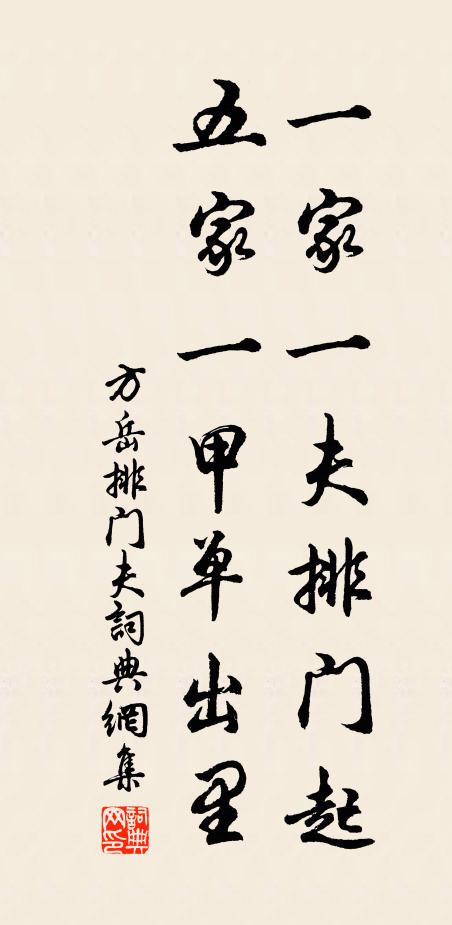 一家一夫排门起
五家一甲单出里
方岳排门夫詞典網集
詞典
网印